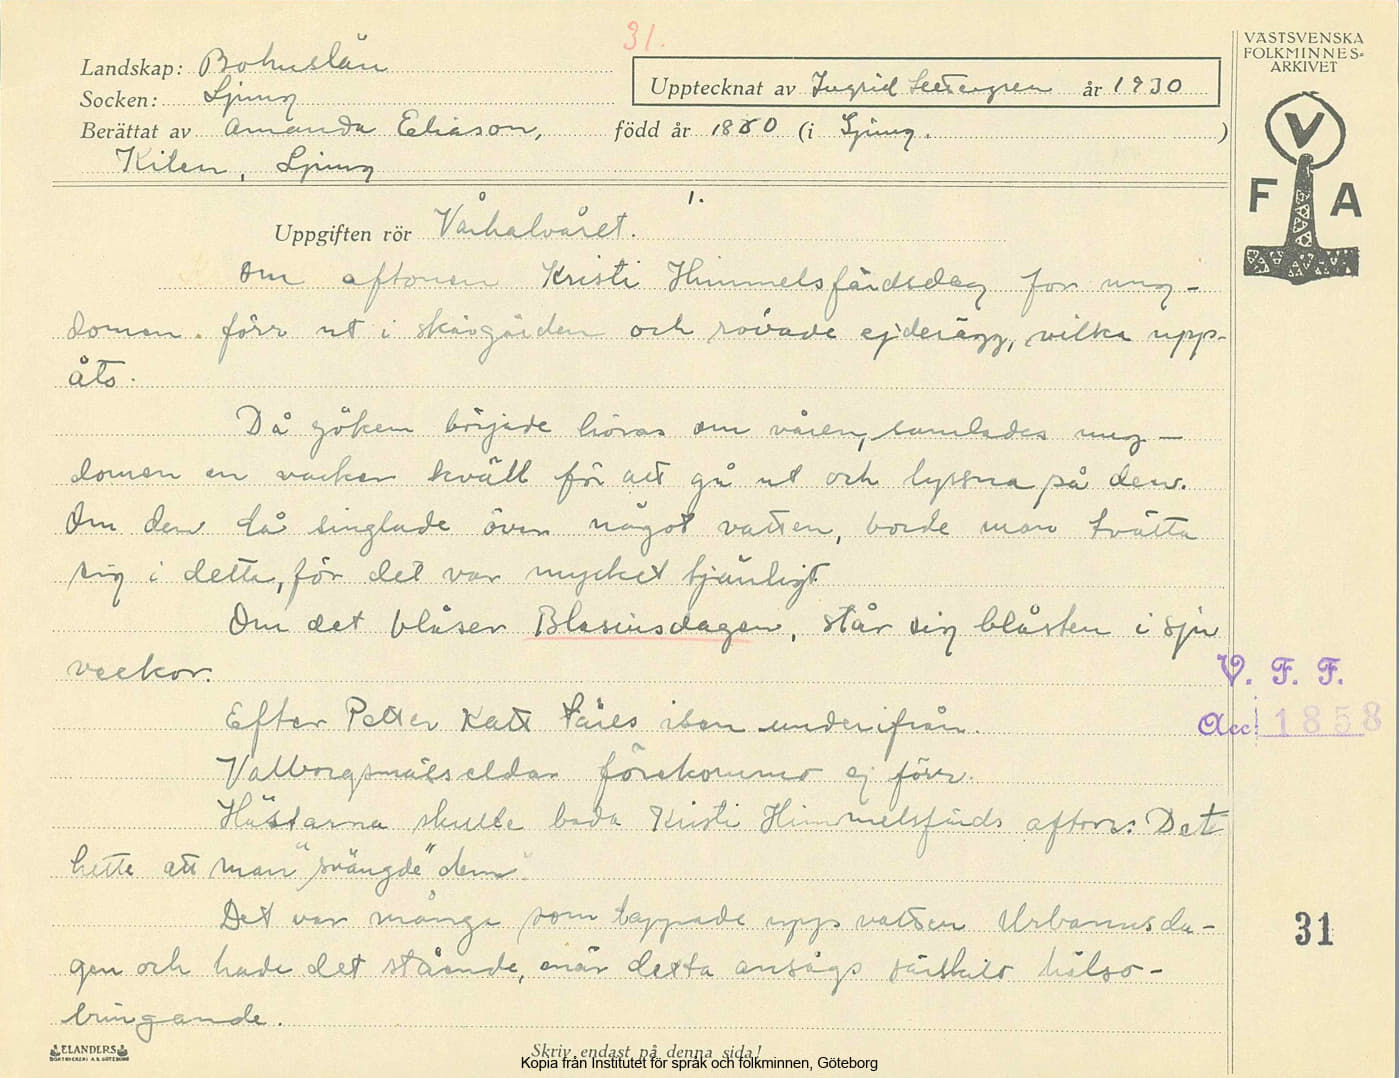 31.
VÄSTSVENSKA
FOLKMINNES=
ARKIVET
Landskap: Bohuslän
Upptecknat av Ingrid Settergren år 1930
Socken: Ljung
Berättat av Amanda Eliason, född år 1880 (i Ljung. )
Kilen, Ljung
V
F A
1.
Uppgiften rör Vårhalvåret.
Om aftonen Kristi Himmelsfärdsdag for ung-
domen förr ut i skärgården och rövade ejderägg, vilka upp-
åts.
Då göken började höras om våren, samlades ung-
domen en vacker kväll för att gå ut och lyssna på den.
Om den då singlade över något vatten, borde man tvätta
sig i detta, för det var mycket tjänligt
Om det blåser Blasiusdagen, står sig blåsten i sju
veckor.
V. F. F.
Acc: 1858
Efter Petter Katt täres isen underifrån.
Valborgsmässeldar förekommo ej förr.
Hästarna skulle bada Kristi Himmelsfärds afton: Det
hette att man "svängde" dem.
Det var många som tappade upp vatten Urbanusda-
gen och hade det stående, när detta ansågs särskilt hälso-
bringande.
31
ELANDERS
BOKTRYCKERI A.B. GÖTEBORG
Skriv endast på denna sida!
Kopia från Institutet för språk och folkminnen, Göteborg